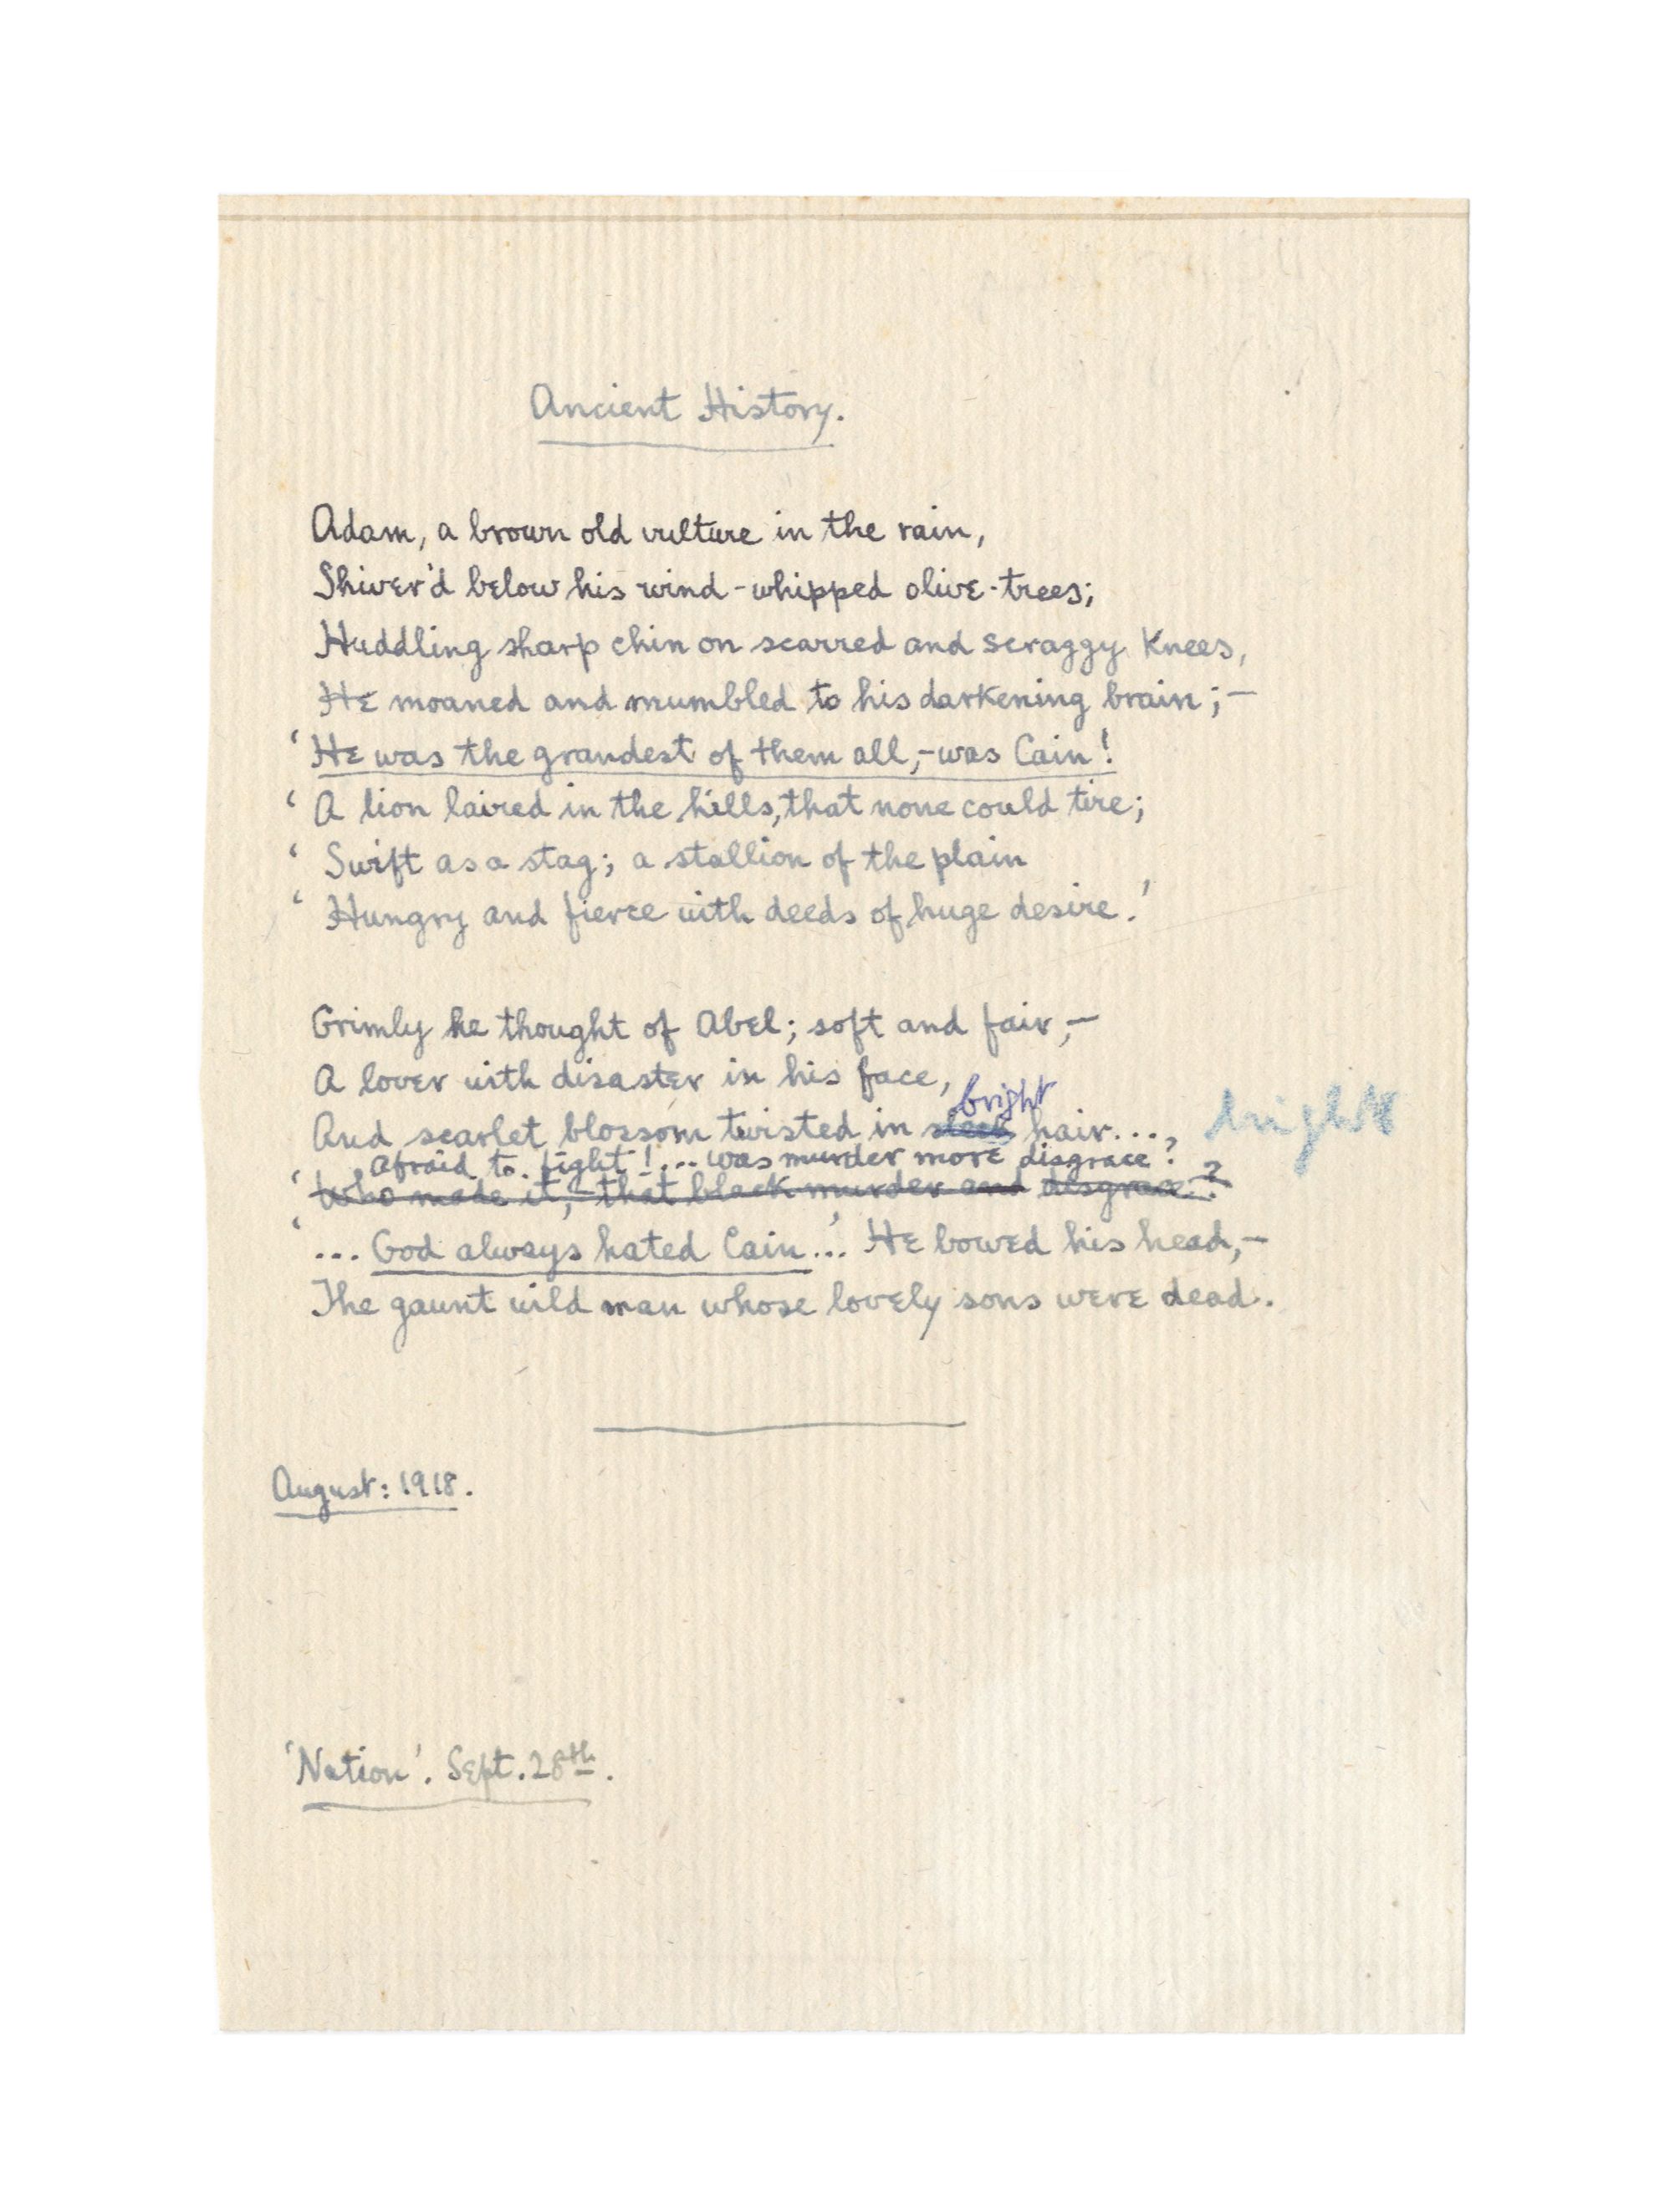 Ancient History.
Adam, a brown old vulture in the rain,
Shiver'd below his wind-whipped olive-trees;
Huddling sharp chin on scarred and scraggy knees,
He moaned and mumbled to his darkening brain;—
'He was the grandest of them all,—was Cain!
'A lion laired in the hills, that none could tire;
'Swift as a stag; a stallion of the plain
'Hungry and fierce with deeds of huge desire.'
Grimly he thought of Abel; soft and fair,—
A lover with disaster in his face,
bright
And scarlet blossom twisted in sleek hair...., bright
'Afraid to fight!... was murder more disgrace?
'Who made it,—that black murder and disgrace?
'... God always hated Cain'... He bowed his head,—
The gaunt wild man whose lovely sons were dead.
August: 1918.
'Nation'. Sept. 28th.